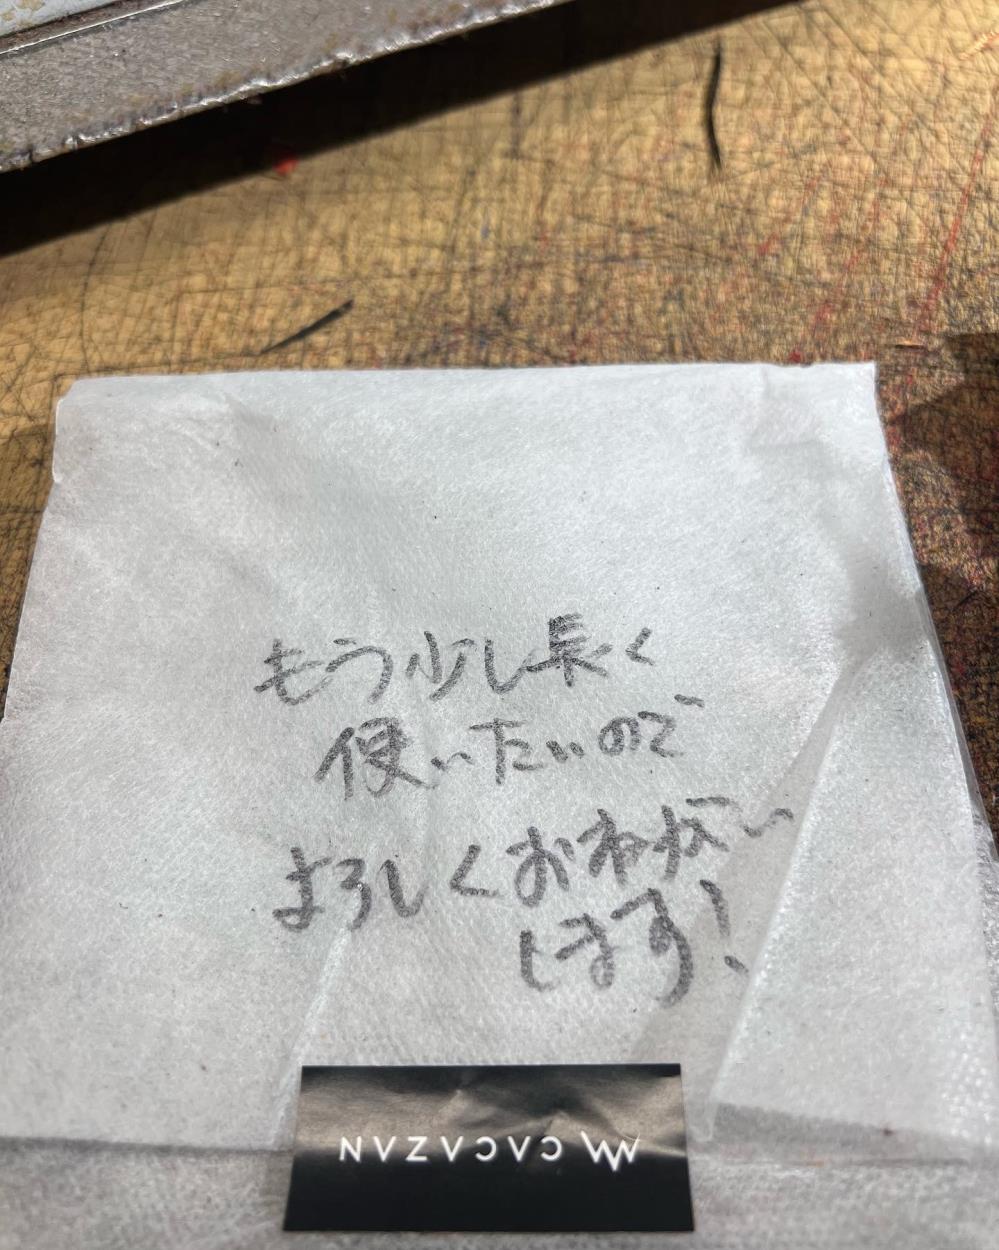 もう少し長く
使いたいので
よろしくおねがい
します!
CACAZAN